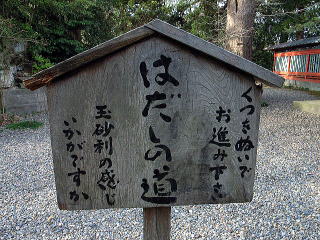 はだしの道
くつをぬいで
お進み下さい
玉砂利の感じ
いかがですか